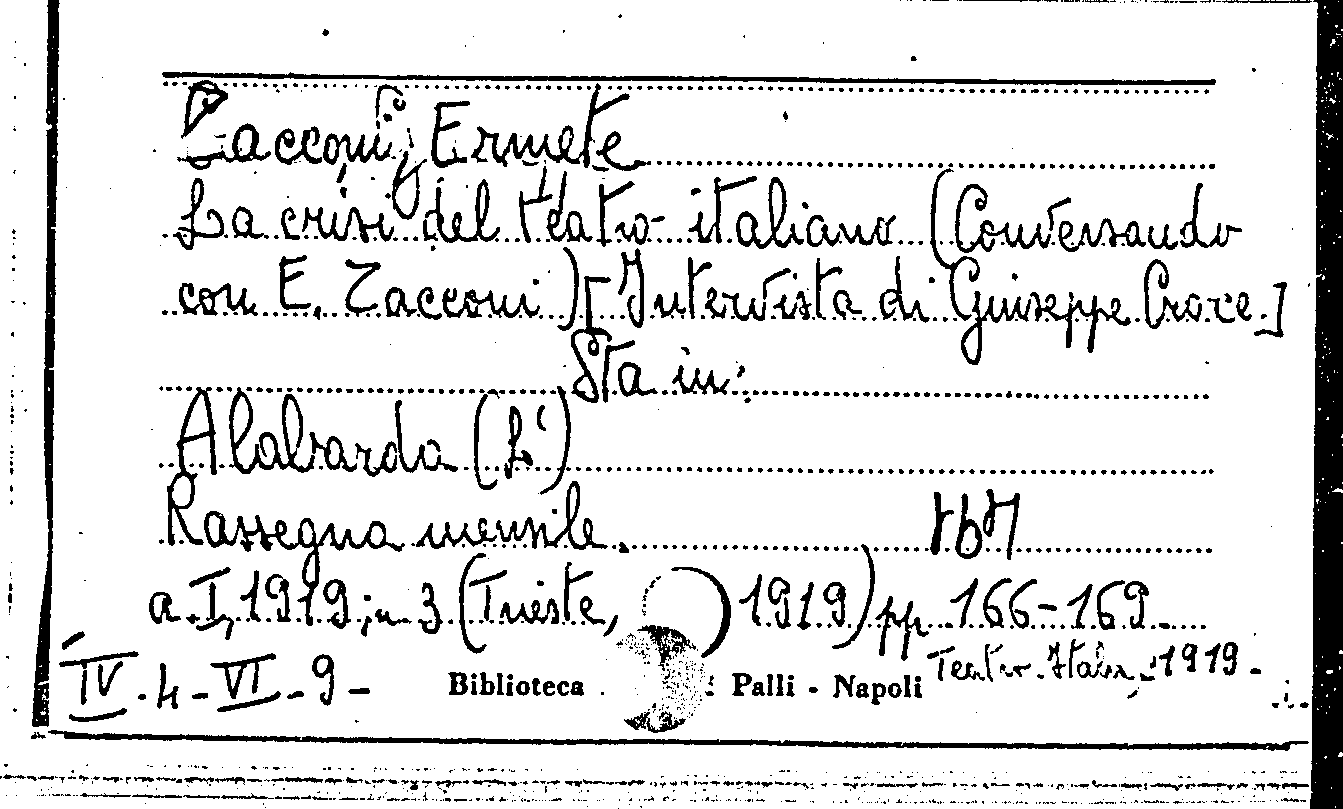 Zacconi, Ermete
La crisi del teatro italiano (Conversando
con E. Zacconi) [Intervista di Giuseppe Croce.]
Sta in:
Alabarda (L')
Rassegna mensile.
a. I, 1919; n. 3 (Trieste, 1919) pp. 166-169.
Teatro. Ital. 1919 -
IV. 4 - VI - 9 - Biblioteca Palli - Napoli